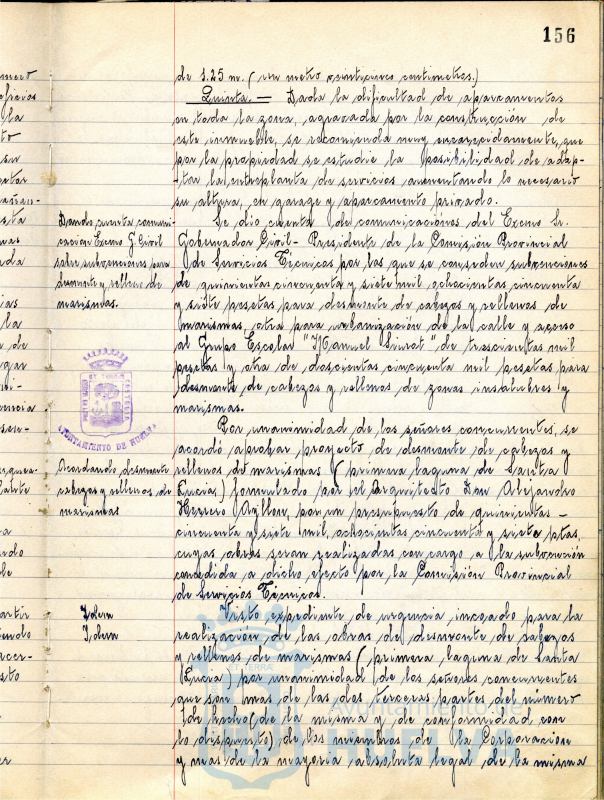 156
de 1.25 m. (un metro veinticinco centimetros.)
Quinta. — Dada la dificultad de aparcamientos
en toda la zona, agravada por la construcción de
este inmueble, se recomienda muy encarecidamente, que
por la propiedad se estudie la posibilidad de adap-
tar la entreplanta de servicios aumentando lo necesario
su altura, en garaje y aparcamiento privado.
Dando cuenta comuni-
cación Excmo G. Civil
sobre subvenciones para
desmonte y relleno de
marismas.
Se dio cuenta de comunicaciónes del Excmo Sr.
Gobernador Civil - Presidente de la Comisión Provincial
de Servicios Técnicos por las que se conceden subvenciones
de quinientas cincuenta y siete mil ochocientas cincuenta
y siete pesetas para desmonte de cabezos y rellenos de
marismas, otra para urbanización de la calle y acceso
al Grupo Escolar "Manuel Siurot" de trescientas mil
pesetas y otra de doscientas cincuenta mil pesetas para
desmonte de cabezas y rellenos de zonas insalubres y
marismas.
AYUNTAMIENTO DE HUELVA
Acordando desmonte
cabezos y rellenos de
marismas
Por unanimidad de los señores concurrentes, se
acordó aprobar proyecto de desmonte de cabezos y
rellenos de marismas (primera laguna de Santa
Lucia,) formulado por el Arquitecto Don Alejandro
Herrero Ayllon, por un presupuesto de quinientas -
cincuenta y siete mil, ochocientas cincuenta y siete ptas.
cuyas obras seran realizadas con cargo a la subvención
concedida a dicho efecto por la Comisión Provincial
de Servicios Técnicos.
Idem
Idem
Visto expediente de urgencia incoado para la
realización de las obras de desmonte de cabezos
y rellenos de marismas (primera laguna de Santa
Lucia) por unanimidad de los señores concurrentes
que son mas de las dos terceras partes del número
de hecho (de la misma y de conformidad con
lo dispuesto) de los miembros de la Corporacione
y mas de la mayoria absoluta legal de la misma
Ayuntamiento de
HUELVA